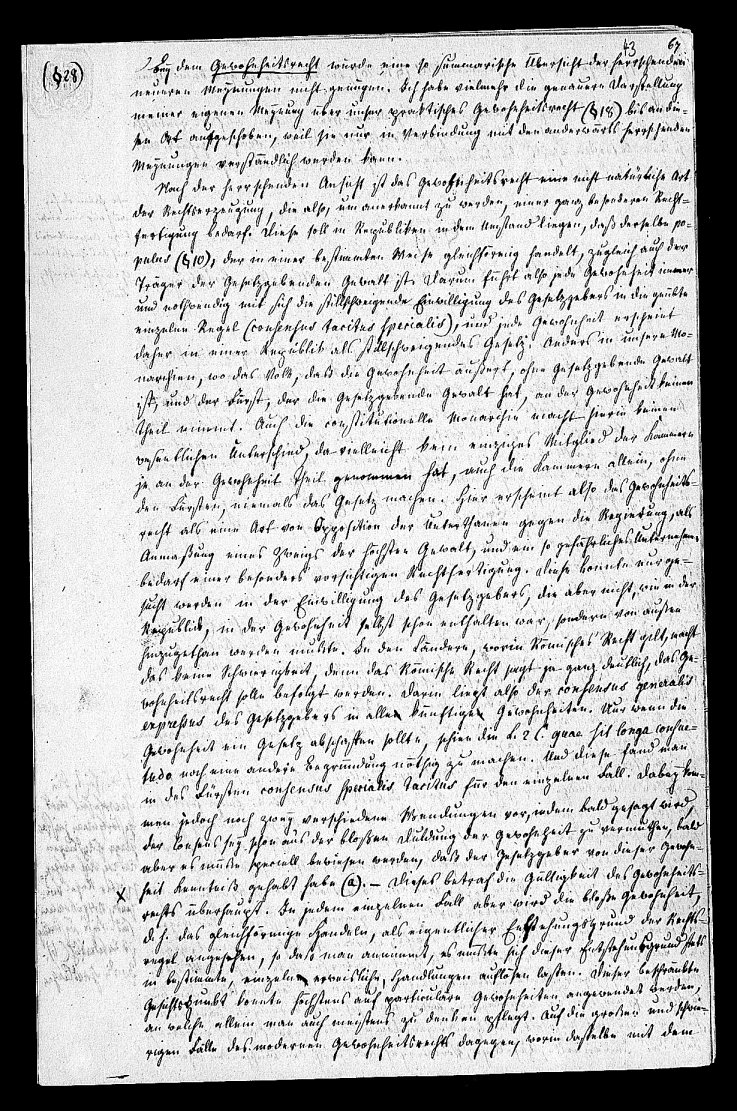 43 67
(§28)
Bey dem Gewohnheitsrecht würde eine so summarische Übersicht der herrschenden
neueren Meynungen nicht genügen. Ich habe vielmehr die genauere Darstellung
meiner eigenen Meynung über unser praktisches Gewohnheitsrecht (§18) bis an die-
sen Ort aufgeschoben, weil sie nur in Verbindung mit den anderwärts herrschenden
Meynungen verständlich werden kann.
Nach der herrschenden Ansicht ist das Gewohnheitsrecht eine nicht natürliche Art
der Rechtserzeugung, die also, um anerkannt zu werden, einer ganz besonderen Recht-
fertigung bedarf. Diese soll in Republiken in dem Umstand liegen, daß derselbe po-
pulus (§10), der in einer bestimmten Weise gleichförmig handelt, zugleich auch der
Träger der Gesetzgebenden Gewalt ist. Darum führt also jede Gewohnheit immer
und nothwendig mit sich die stillschweigende Einwilligung des Gesetzgebers in die geübte
einzelne Regel (consensus tacitus specialis), und jede Gewohnheit erscheint
daher in einer Republik als stillschweigendes Gesetz. Anders in unseren Mo-
narchien, wo das Volk, daß die Gewohnheit äußert, ohne Gesetzgebende Gewalt
ist, und der Fürst, der die Gesetzgebende Gewalt hat, an der Gewohnheit keinen
Theil nimmt. Auch die constitutionelle Monarchie macht hierin keinen
wesentlichen Unterschied, da vielleicht kein einziges Mitglied der Kammern
je an der Gewohnheit Theil genommen hat, auch die Kammern allein, ohne
den Fürsten, niemals das Gesetz machen. Hier erscheint also das Gewohnheits-
recht als eine Art von Opposition der Unterthanen gegen die Regierung, als
Anmaßung eines Zweigs der höchsten Gewalt, und ein so gefährliches Unternehmen
bedarf einer besonders vorsichtigen Rechtfertigung. Diese konnte nur ge-
sucht werden in der Einwilligung des Gesetzgebers, die aber nicht, wie in der
Republik, in der Gewohnheit selbst schon enthalten war, sondern von außen
hinzugethan werden mußte. In den Ländern, worin Römisches Recht gilt, macht
das keine Schwierigkeit, denn das Römische Recht sagt ja ganz deutlich, das Ge-
wohnheitsrecht solle befolgt werden. Darin liegt also der consensus generalis
expressus des Gesetzgebers in alle künftige Gewohnheiten. Nur wenn die
Gewohnheit ein Gesetz abschaffen sollte, schien die L. 2 C. quae sit longa consue-
tudo noch eine andere Begründung nöthig zu machen. Und diese fand man
in des Fürsten consensus specialis tacitus für den einzelnen Fall. Dabey kom-
men jedoch noch zwey verschiedene Wendungen vor, indem bald gesagt wird,
der Consens sey schon aus der bloßen Duldung der Gewohnheit zu vermuthen, bald
aber es müsse speciell bewiesen werden, daß der Gesetzgeber von dieser Gewohn-
heit Kenntniß gehabt habe (a). – Dieses betraf die Gültigkeit des Gewohnheits-
rechts überhaupt. In jedem einzelnen Fall aber wird die bloße Gewohnheit,
d. h. das gleichförmige Handeln, als eigentlicher Entstehungsgrund der Rechts-
regel angesehen, so daß man annimmt, es müßte sich dieser Entstehungsgrund stets
in bestimmte, einzeln erweisliche, Handlungen auflösen lassen. Dieser beschränkte
Gesichtspunkt konnte höchstens auf particuläre Gewohnheiten angewendet werden,
an welche allein man auch meistens zu denken pflegt. Auf die großen und schwie-
rigen Fälle des modernen Gewohnheitsrechts dagegen, worin dasselbe mit dem